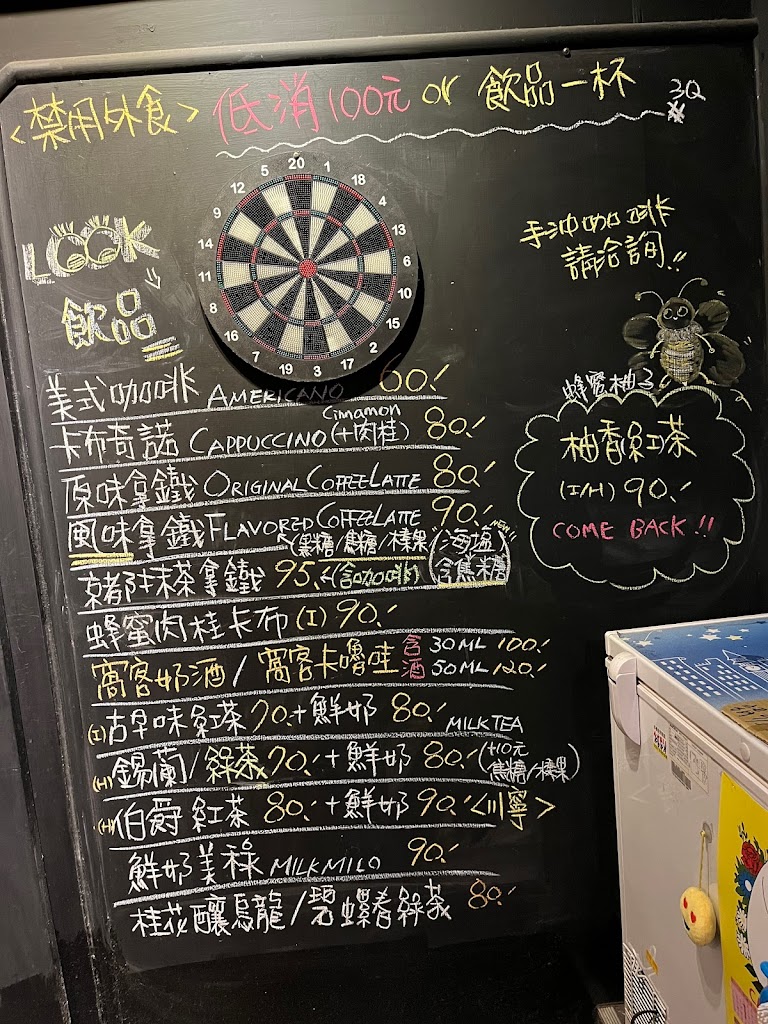 <禁用外食> 低消100元 or 飲品一杯 3Q
20 1 18 4 13 6 10 15 2 17 3 19 7 16 8 11 14 9 12 5
LOOK
飲品
手沖咖啡
請洽詢!!
美式咖啡 AMERICANO 60.
卡布奇諾 CAPPUCCINO (+肉桂) Cimamon 80.
原味拿鐵 ORIGINAL COFFEE LATTE 80.
風味拿鐵 FLAVORED COFFEE LATTE 90.
(黑糖/焦糖/榛果) (海塩含焦糖)
京都抹茶拿鐵 95. (含咖啡)
蜂蜜肉桂卡布 (I) 90.
窩客奶酒/窩客卡嚕哇 含酒 30ML 100. 50ML 120.
(I) 古早味紅茶 70.+鮮奶 80. MILKTEA
(H) 錫蘭/綠茶 70.+鮮奶 80. (+10元 焦糖/榛果)
(H) 伯爵紅茶 80.+鮮奶 90. <川寧>
鮮奶美祿 MILK MILO 90.
桂花釀烏龍/碧螺春綠茶 80.
蜂蜜柚子
柚香紅茶
(I/H) 90.
COME BACK !!